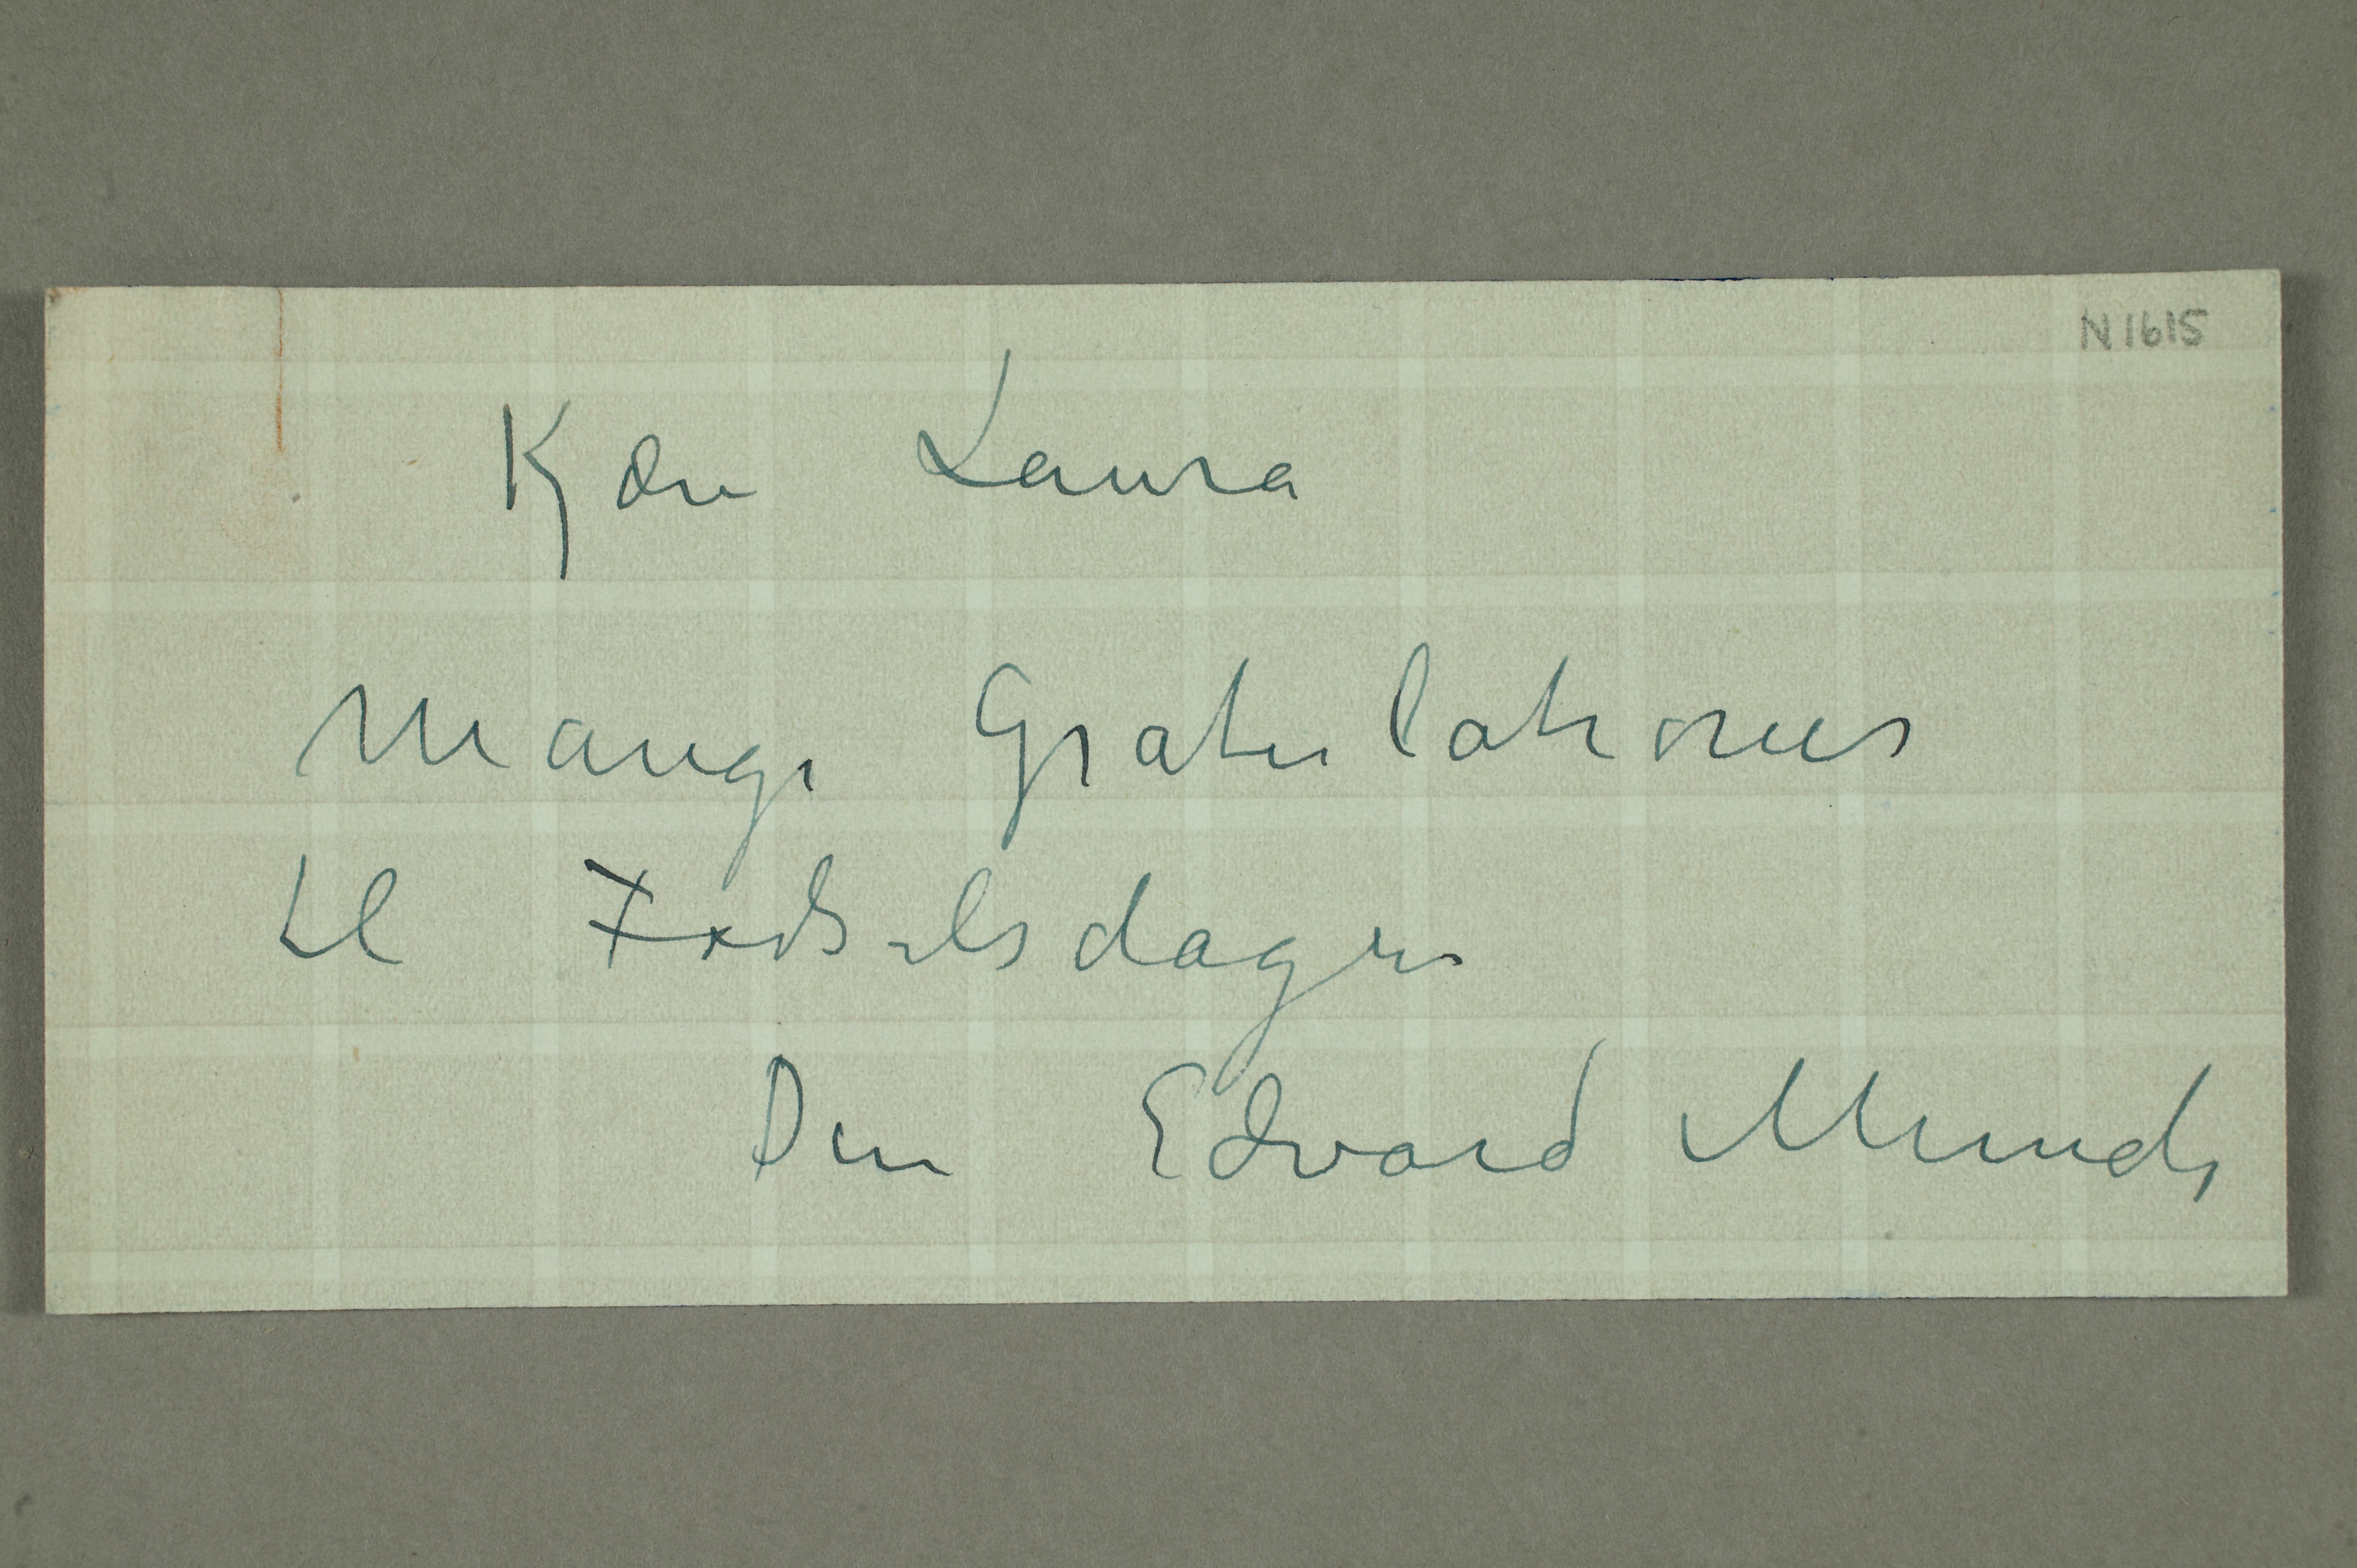 N 1615
Kjære Laura
Mange Gratulationer
til Fødselsdagen
Din Edvard Munch